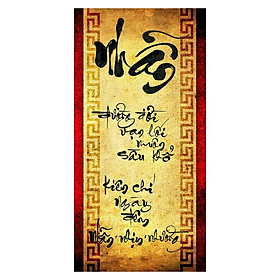 Nhẫn
đường đời
vạn lối
muôn
sầu khổ
Kiên chí
ngày
đêm
nhẫn nhịn nhường